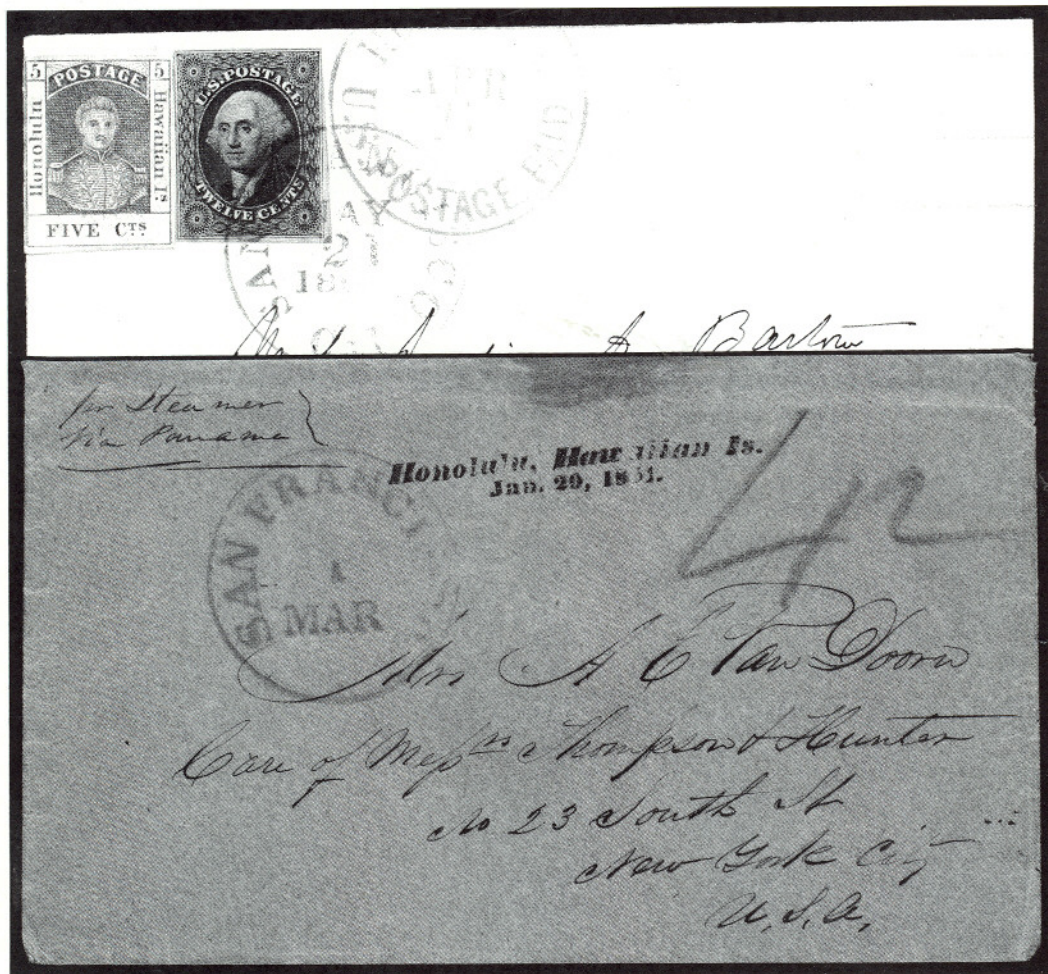 5 POSTAGE 5
Honolulu
Hawaiian Is.
FIVE CTS
U.S. POSTAGE
TWELVE CENTS
U.S. POSTAGE PAID
SAN
CO
Barlow
per Steamer
Via Panama
Honolulu, Hawaiian Is.
Jan. 29, 1851.
42
SAN FRANCI
1
MAR
Mrs A E Van Doorn
Care of Messrs Thompson & Hunter
No 23 South St
New York City
U.S.A.